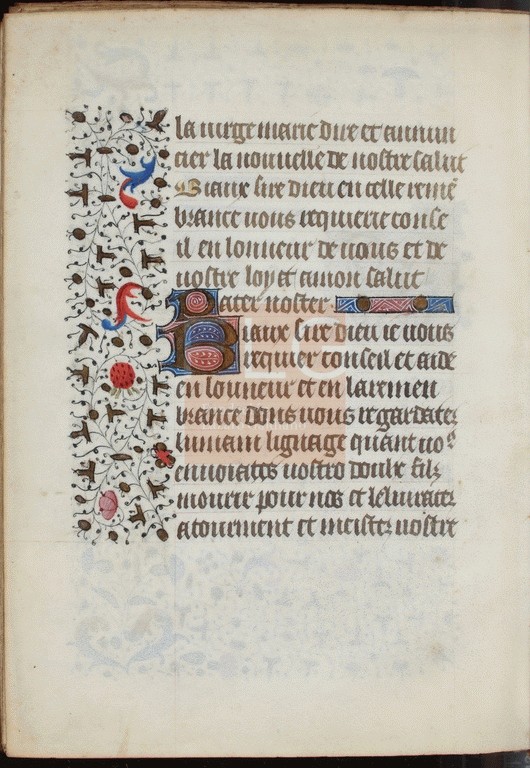 la virge marie dire et annun
cier la nouvelle de nostre salut
Biaux sire dieu en celle remē
brance vous requierre conse
il en lonneur de vous et de
nostre loy et amon salut
Pater noster
Biaux sire dieu ie vous
requier conseil et aide
en lonneur et en la remen
brance dons vous regardates
lumain lignage quant vos
envoiates vostre doulx filz
mourir pour nos et le livrates
a tourment et meistes vostre